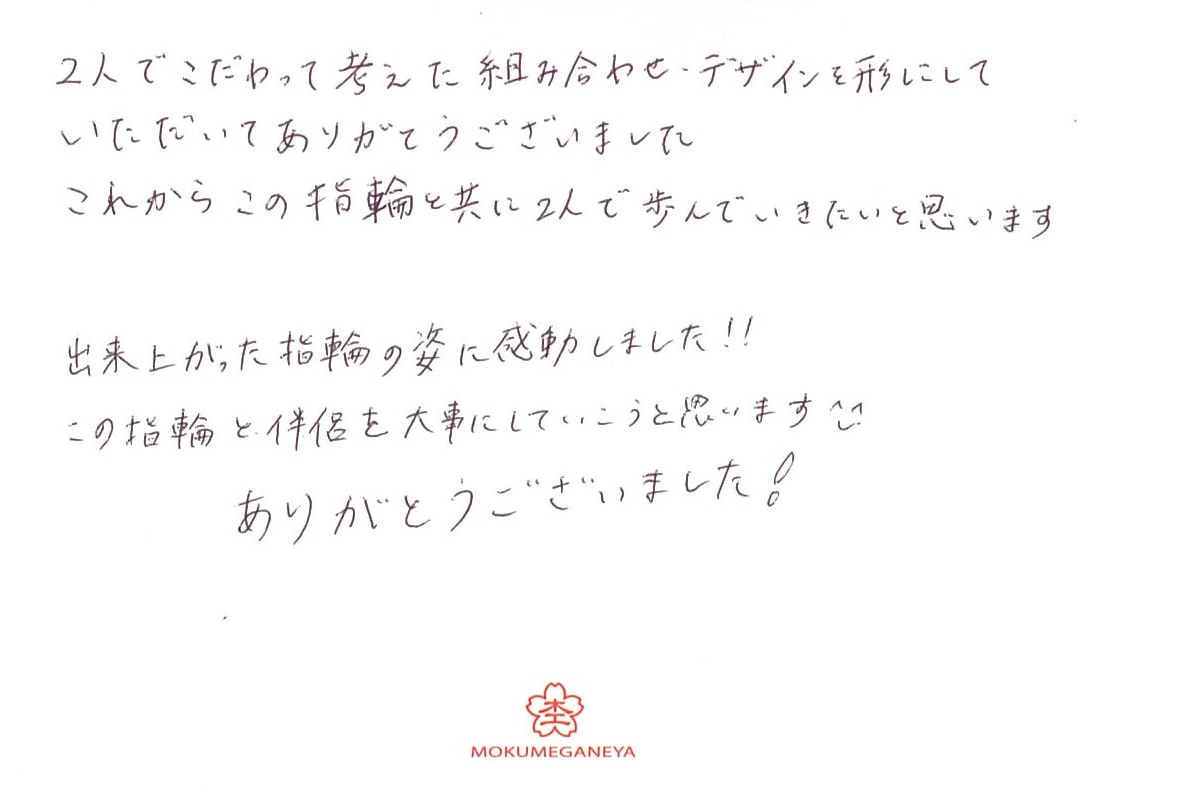 2人でこだわって考えた組み合わせ・デザインを形にして
いただいてありがとうございました
これからこの指輪と共に2人で歩んでいきたいと思います
出来上がった指輪の姿に感動しました!!
この指輪と伴侶を大事にしていこうと思います
ありがとうございました!
MOKUMEGANEYA